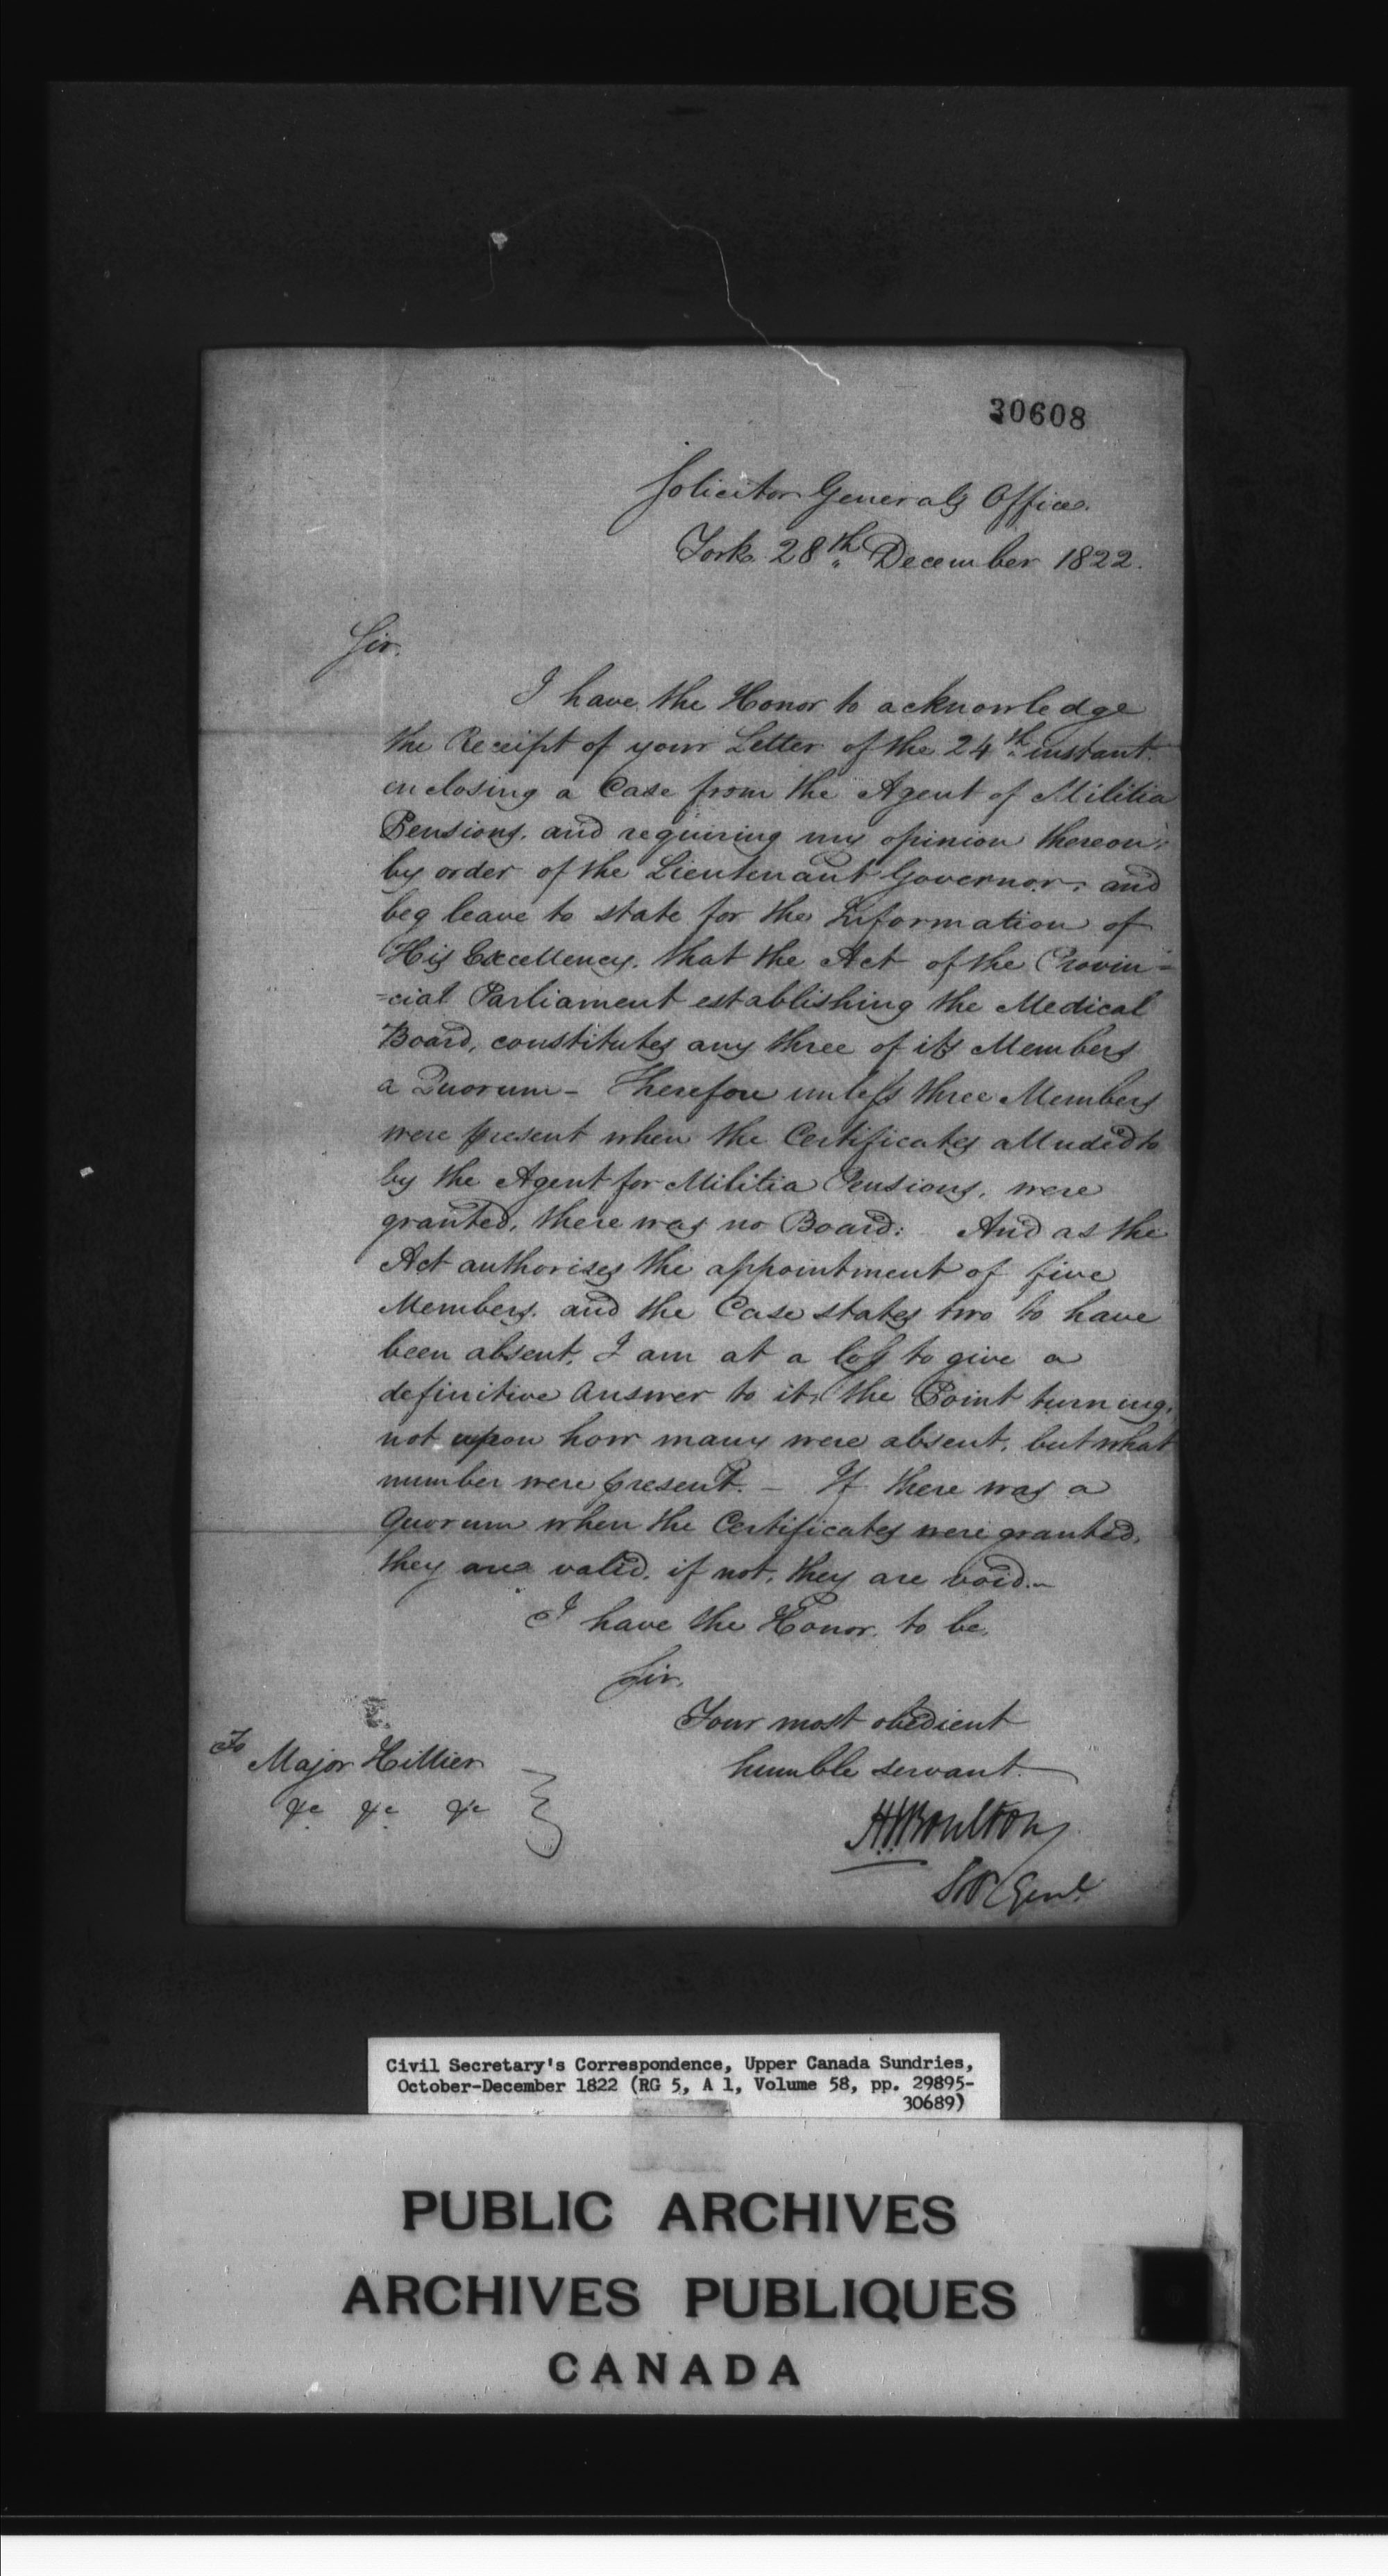 30608
Solicitor Generals Office
York 28th December 1822.
Sir.
I have the Honor to acknowledge
the Receipt of your Letter of the 24th instant
enclosing a Case from the Agent of Militia
Pensions, and requiring my opinion thereon,
by order of the Lieutenant Governor, and
beg leave to state for the Information of
His Excellency, that the Act of the Provin=
=cial Parliament establishing the Medical
Board, constitutes any three of its Members
a Quorum - Therefore unless three Members
were present when the Certificates alluded to
by the Agent for Militia Pensions, were
granted, there was no Board: And as the
Act authorises the appointment of five
Members, and the Case states two to have
been absent, I am at a loss to give a
definitive answer to it, the Point turning,
not upon how many were absent, but what
number were present. - If there was a
Quorum when the Certificates were granted,
they are valid, if not, they are void.-
I have the Honor, to be,
Sir,
Your most obedient
humble servant.
H J Boulton
Solr Genl.
To
Major Hillier
&c &c &c
Civil Secretary's Correspondence, Upper Canada Sundries,
October-December 1822 (RG 5, A 1, Volume 58, pp. 29895-
30689)
PUBLIC ARCHIVES
ARCHIVES PUBLIQUES
CANADA